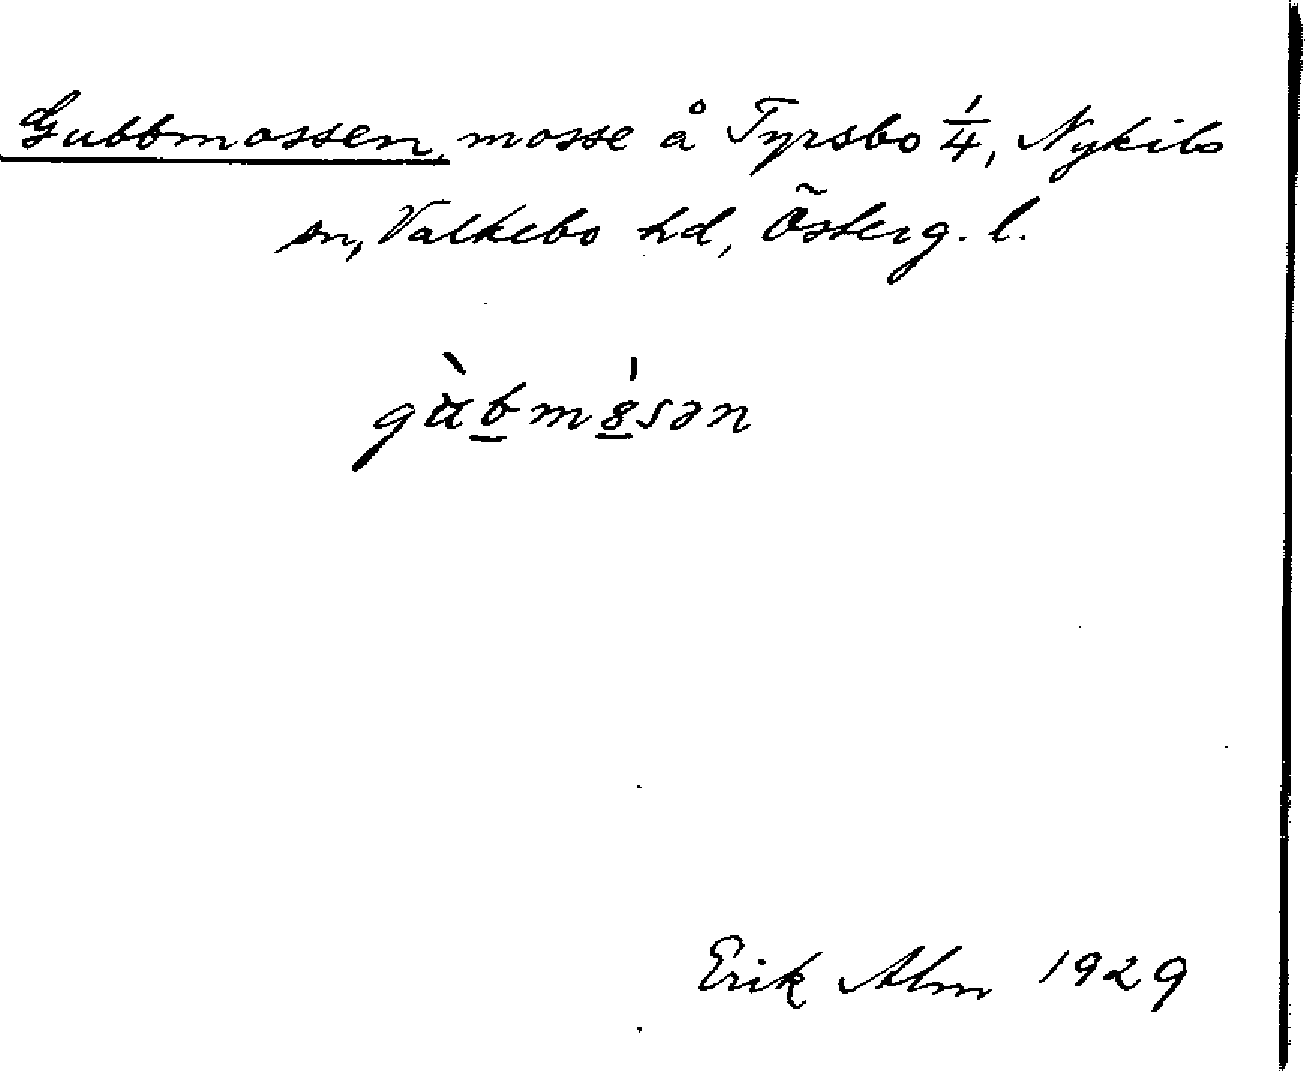 Gubbmossen, mosse å Tyrsbo 1/4, Nykils
sn, Valkebo hd, Österg. l.
Erik Alm 1929